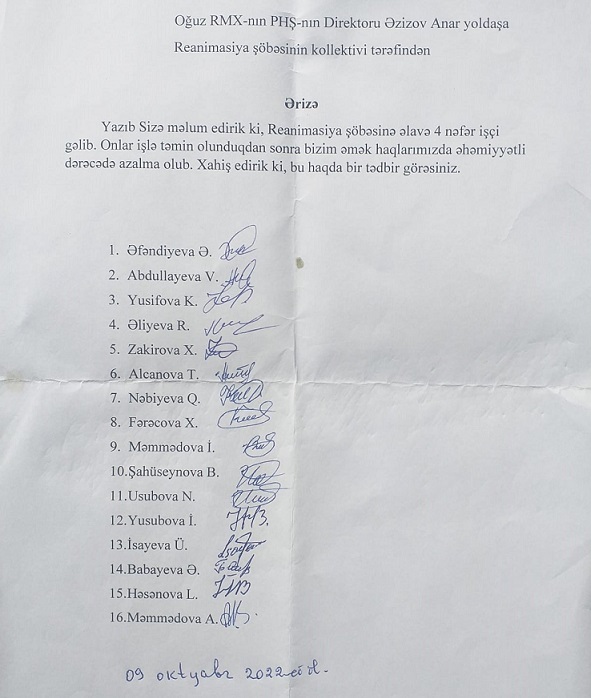 Oğuz RMX-nın PHŞ-nın Direktoru Əzizov Anar yoldaşa
Reanimasiya şöbəsinin kollektivi tərəfindən
Ərizə
Yazıb Sizə məlum edirik ki, Reanimasiya şöbəsinə əlavə 4 nəfər işçi
gəlib. Onlar işlə təmin olunduqdan sonra bizim əmək haqlarımızda əhəmiyyətli
dərəcədə azalma olub. Xahiş edirik ki, bu haqda bir tədbir görəsiniz.
1. Əfəndiyeva Ə.
2. Abdullayeva V.
3. Yusifova K.
4. Əliyeva R.
5. Zakirova X.
6. Alcanova T.
7. Nəbiyeva Q.
8. Fərəcova X.
9. Məmmədova İ.
10.Şahüseynova B.
11.Usubova N.
12.Yusubova İ.
13.İsayeva Ü.
14.Babayeva Ə.
15.Həsənova L.
16.Məmmədova A.
09 oktyabr 2022-ci il.